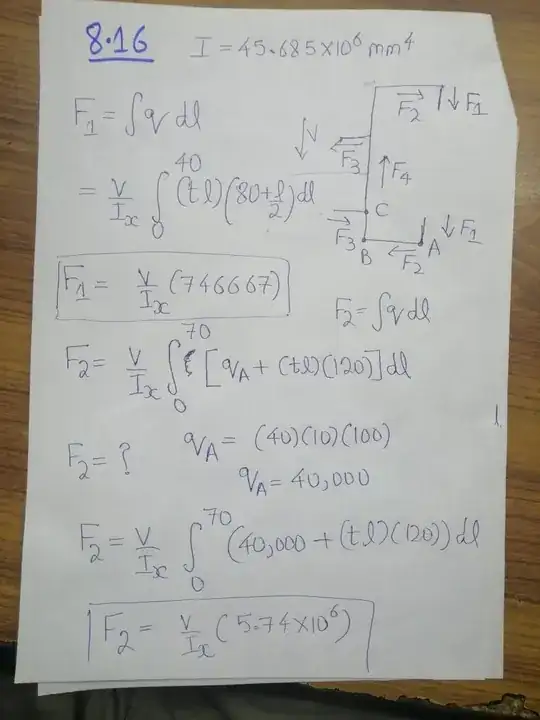 8.16 I = 45.685×10⁶ mm⁴
F₁ = ∫q dl
= V/Iₓ ∫₀⁴⁰ (tl)(80+l/2)dl
F₁ = V/Iₓ (746667)
V
F₂
F₁
F₃
F₄
C
F₃
F₁
B
F₂
A
F₂ = ∫q dl
F₂ = V/Iₓ ∫₀⁷⁰ [q_A + (tl)(120)]dl
F₂ = ? q_A = (40)(10)(100)
q_A = 40,000
F₂ = V/Iₓ ∫₀⁷⁰ (40,000 + (tl)(120))dl
F₂ = V/Iₓ (5.74×10⁶)